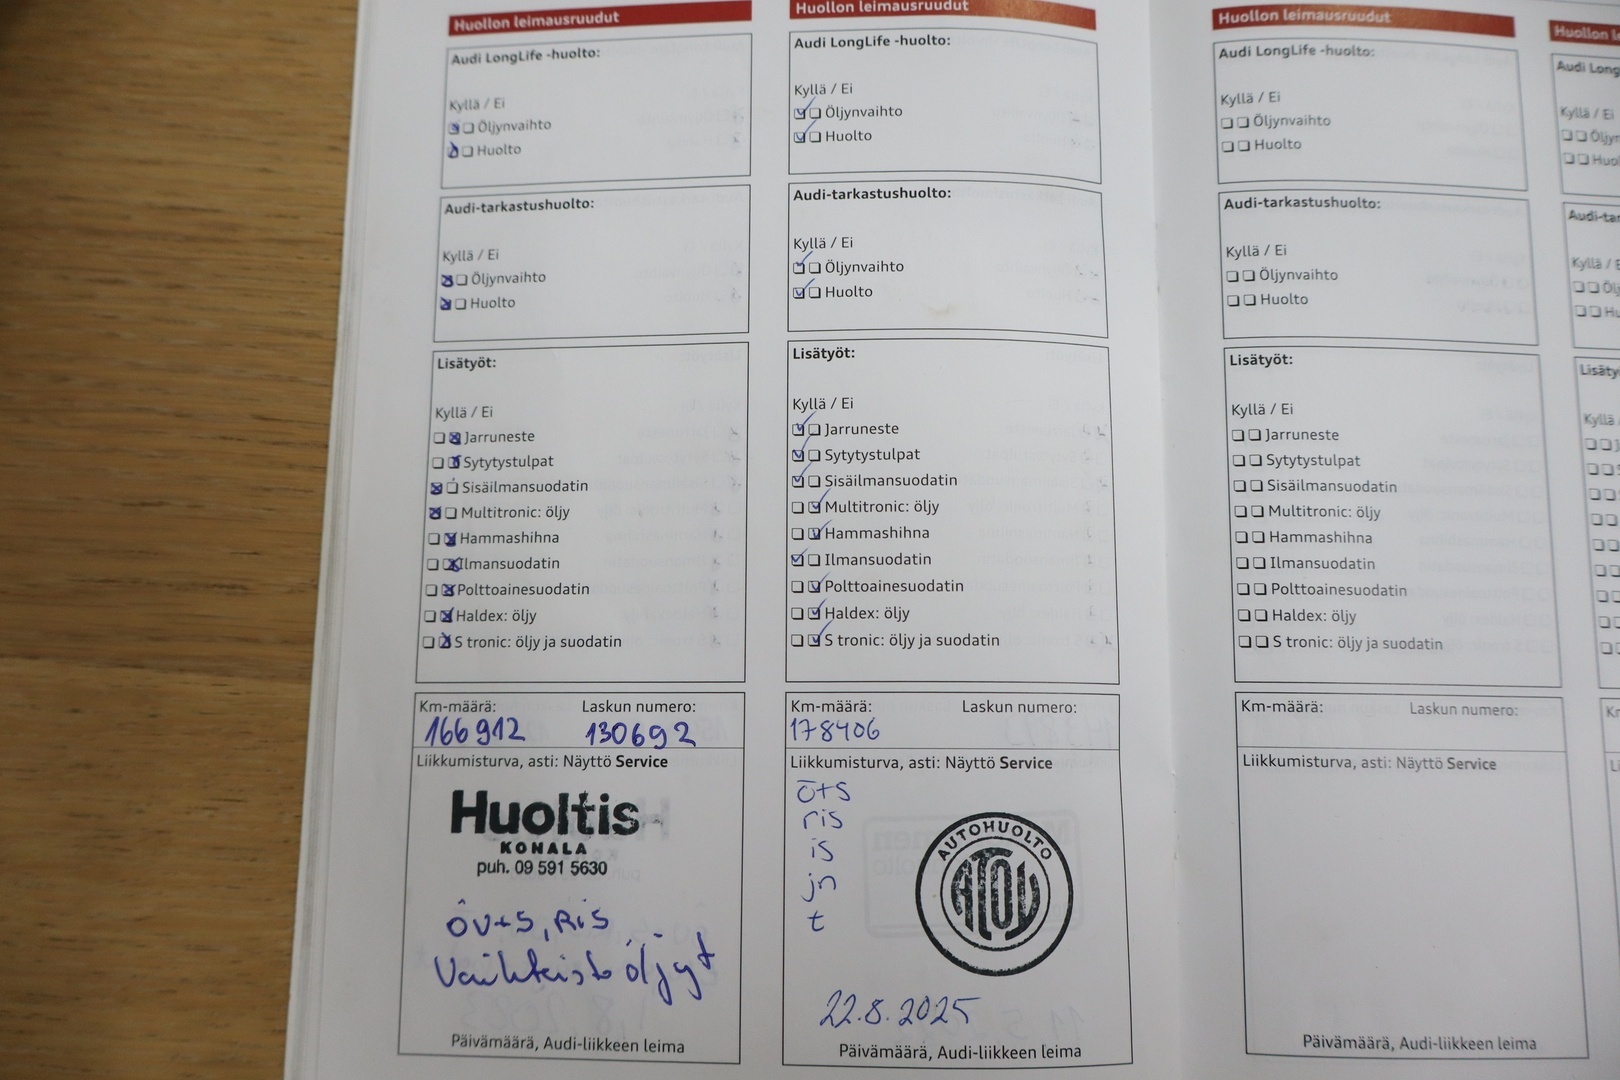 Huollon leimausruudut
Audi LongLife -huolto:
Kyllä / Ei
Öljynvaihto
Huolto
Audi-tarkastushuolto:
Kyllä / Ei
Öljynvaihto
Huolto
Lisätyöt:
Kyllä / Ei
Jarruneste
Sytytystulpat
Sisäilmansuodatin
Multitronic: öljy
Hammashihna
Ilmansuodatin
Polttoainesuodatin
Haldex: öljy
S tronic: öljy ja suodatin
Km-määrä: Laskun numero:
166912 130692
Liikkumisturva, asti: Näyttö Service
Huoltis
KONALA
puh. 09 591 5630
öv+s, Ris
Vaihteisto öljyt
Päivämäärä, Audi-liikkeen leima
Huollon leimausruudut
Audi LongLife -huolto:
Kyllä / Ei
Öljynvaihto
Huolto
Audi-tarkastushuolto:
Kyllä / Ei
Öljynvaihto
Huolto
Lisätyöt:
Kyllä / Ei
Jarruneste
Sytytystulpat
Sisäilmansuodatin
Multitronic: öljy
Hammashihna
Ilmansuodatin
Polttoainesuodatin
Haldex: öljy
S tronic: öljy ja suodatin
Km-määrä: Laskun numero:
178406
Liikkumisturva, asti: Näyttö Service
ö+s
ris
is
jn
t
AUTOHUOLTO
ATOY
22.8.2025
Päivämäärä, Audi-liikkeen leima
Huollon leimausruudut
Audi LongLife -huolto:
Kyllä / Ei
Öljynvaihto
Huolto
Audi-tarkastushuolto:
Kyllä / Ei
Öljynvaihto
Huolto
Lisätyöt:
Kyllä / Ei
Jarruneste
Sytytystulpat
Sisäilmansuodatin
Multitronic: öljy
Hammashihna
Ilmansuodatin
Polttoainesuodatin
Haldex: öljy
S tronic: öljy ja suodatin
Km-määrä: Laskun numero:
Liikkumisturva, asti: Näyttö Service
Päivämäärä, Audi-liikkeen leima
Huollon
Audi
Kyllä / E